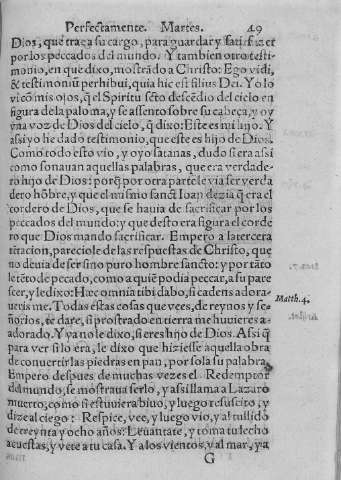 Perfectamente. Martes. 49
Dios, que trae a su cargo, para guardar y satisfazer
por los peccados del mundo. Y tambien otro testi-
monio, en que dixo, mostrãdo a Christo: Ego vidi,
& testimoniũ perhibui, quia hic est filius Dei. Yo lo
vi cõ mis ojos, q̃ el Spiritu sctõ descẽdio del cielo en
figura de la paloma, y se assento sobre su cabeça, y oy
vna voz de Dios del cielo, q̃ dixo: Este es mi hijo. Y
assi yo he dado testimonio, que este es hijo de Dios.
Como todo esto vio, y oyo satanas, dudo si era assi
como sonauan aquellas palabras, que era verdade-
ro hijo de Dios: porq̃ por otra parte le via ser verda
dero hõbre, y que el mismo sanct Ioan dezia q̃ era el
cordero de Dios, que se hauia de sacrificar por los
peccados del mundo: y que desto era figura el corde
ro que Dios mando sacrificar. Empero a la tercera
titacion, pareciole de las respuestas de Christo, que
no deuia de ser sino puro hombre sancto: y por tãto
le tẽto de pecado, como a quiẽ podia peccar, a su pare
scer, y le dixo: Hæc omnia tibi dabo, si cadens adora-
ueris me. Todas estas cosas que vees, de reynos y se-
ñorios, te dare, si prostrado en tierra me huuieres a-
adorado. Y ya no le dixo, si eres hijo de Dios. Assi q̃
para ver si lo era, le dixo que hiziesse aquella obra
de conuertir las piedras en pan, por sola su palabra.
Empero despues de muchas vezes el Redemptor
del mundo, se mostraua serlo, y assi llama a Lazaro
muerto, como si estuuiera biuo, y luego resuscito, y
dize al ciego: Respice, vee, y luego vio, y al tullido
de treynta y ocho años: Leuantate, y toma tu lecho
acuestas, y vete a tu casa. Y a los vientos, y al mar, ya
G
Matth. 4.